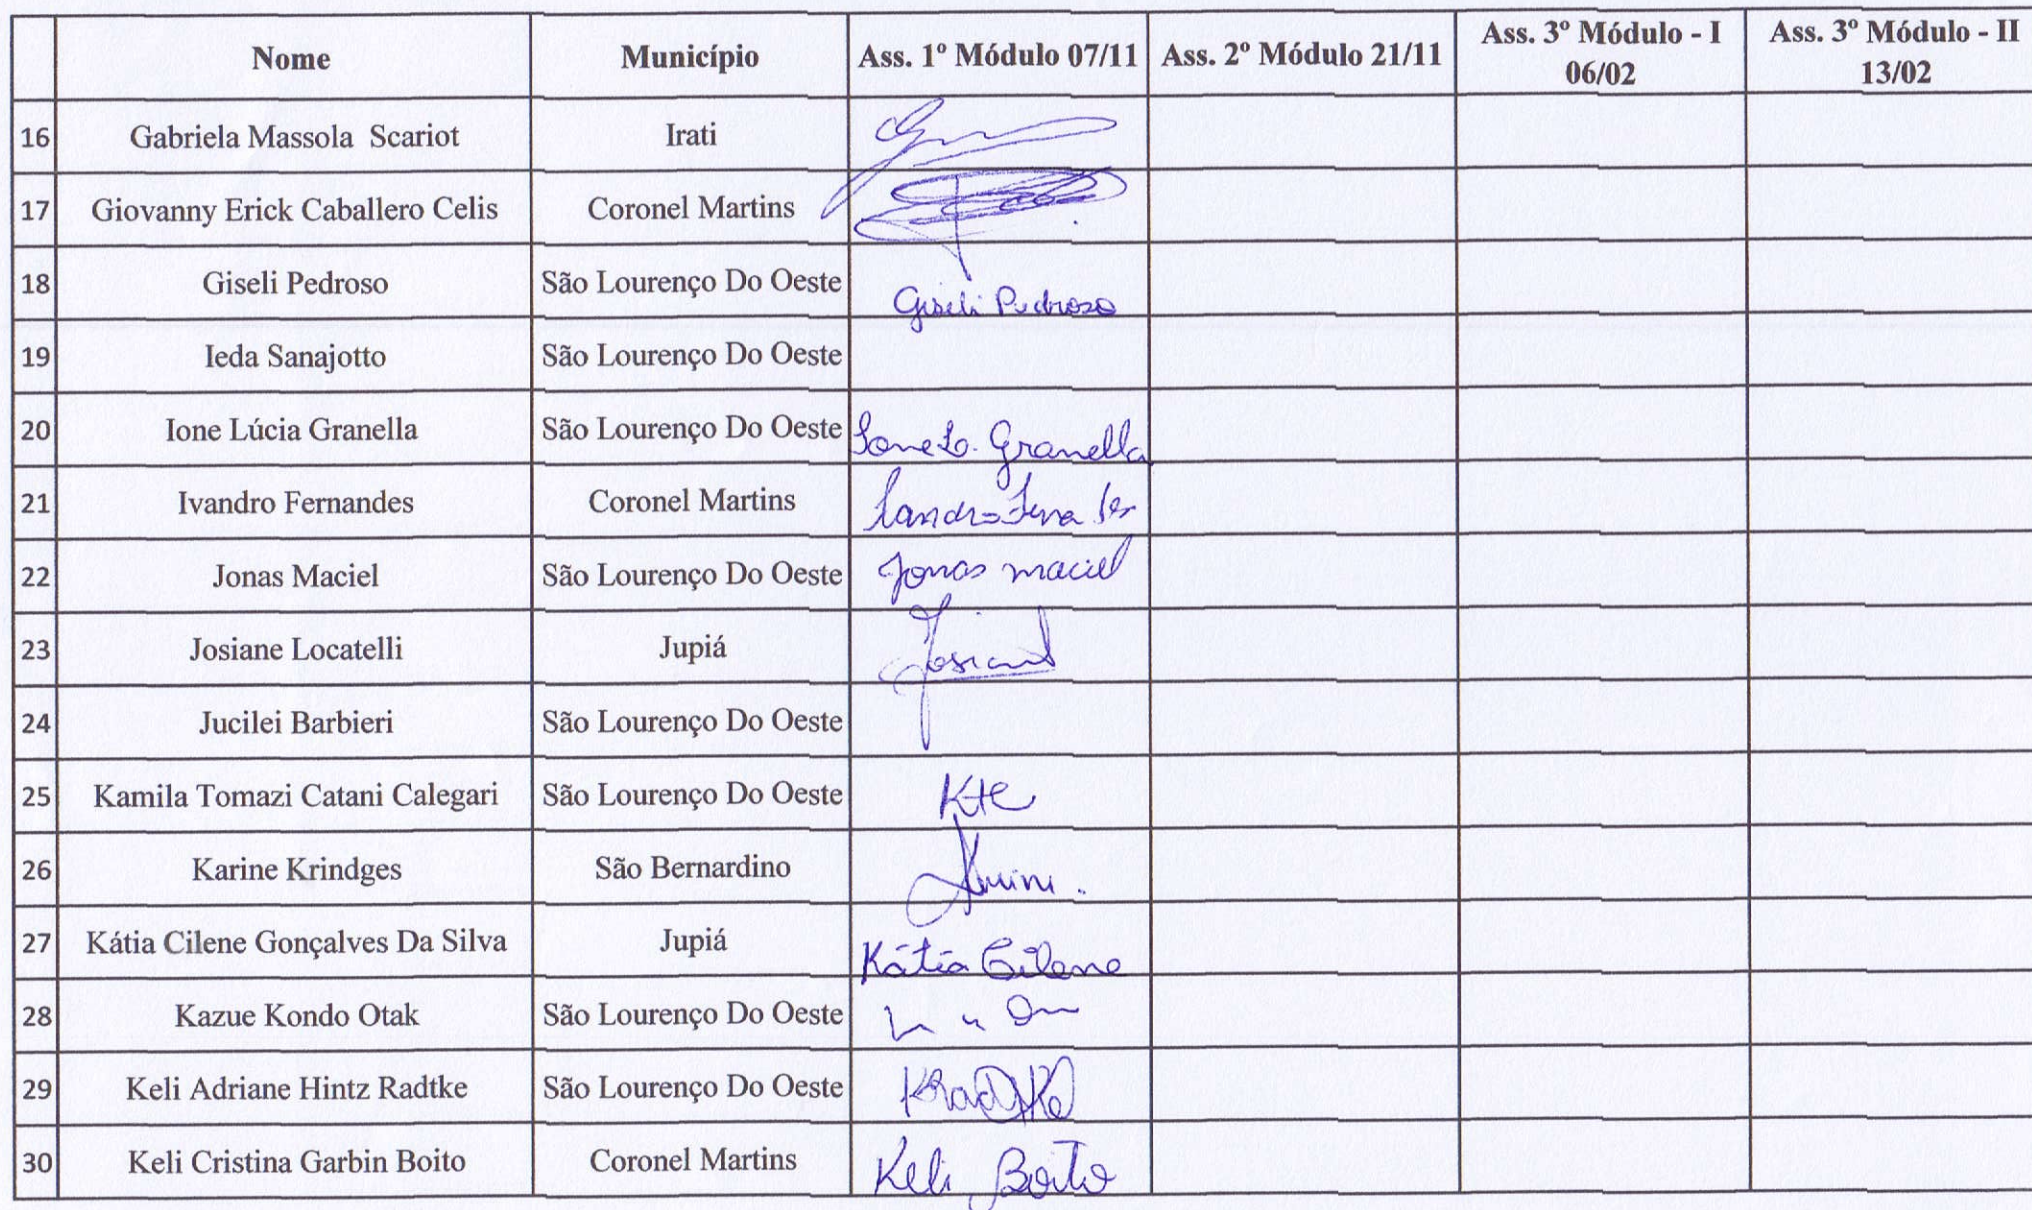 Nome Município Ass. 1º Módulo 07/11 Ass. 2º Módulo 21/11 Ass. 3º Módulo - I 06/02 Ass. 3º Módulo - II 13/02
16 Gabriela Massola Scariot Irati
17 Giovanny Erick Caballero Celis Coronel Martins
18 Giseli Pedroso São Lourenço Do Oeste Giseli Pedroso
19 Ieda Sanajotto São Lourenço Do Oeste
20 Ione Lúcia Granella São Lourenço Do Oeste Ione L. Granella
21 Ivandro Fernandes Coronel Martins
22 Jonas Maciel São Lourenço Do Oeste Jonas maciel
23 Josiane Locatelli Jupiá Josiane
24 Jucilei Barbieri São Lourenço Do Oeste
25 Kamila Tomazi Catani Calegari São Lourenço Do Oeste
26 Karine Krindges São Bernardino
27 Kátia Cilene Gonçalves Da Silva Jupiá Kátia Cilene
28 Kazue Kondo Otak São Lourenço Do Oeste
29 Keli Adriane Hintz Radtke São Lourenço Do Oeste KRadtke
30 Keli Cristina Garbin Boito Coronel Martins Keli Boito